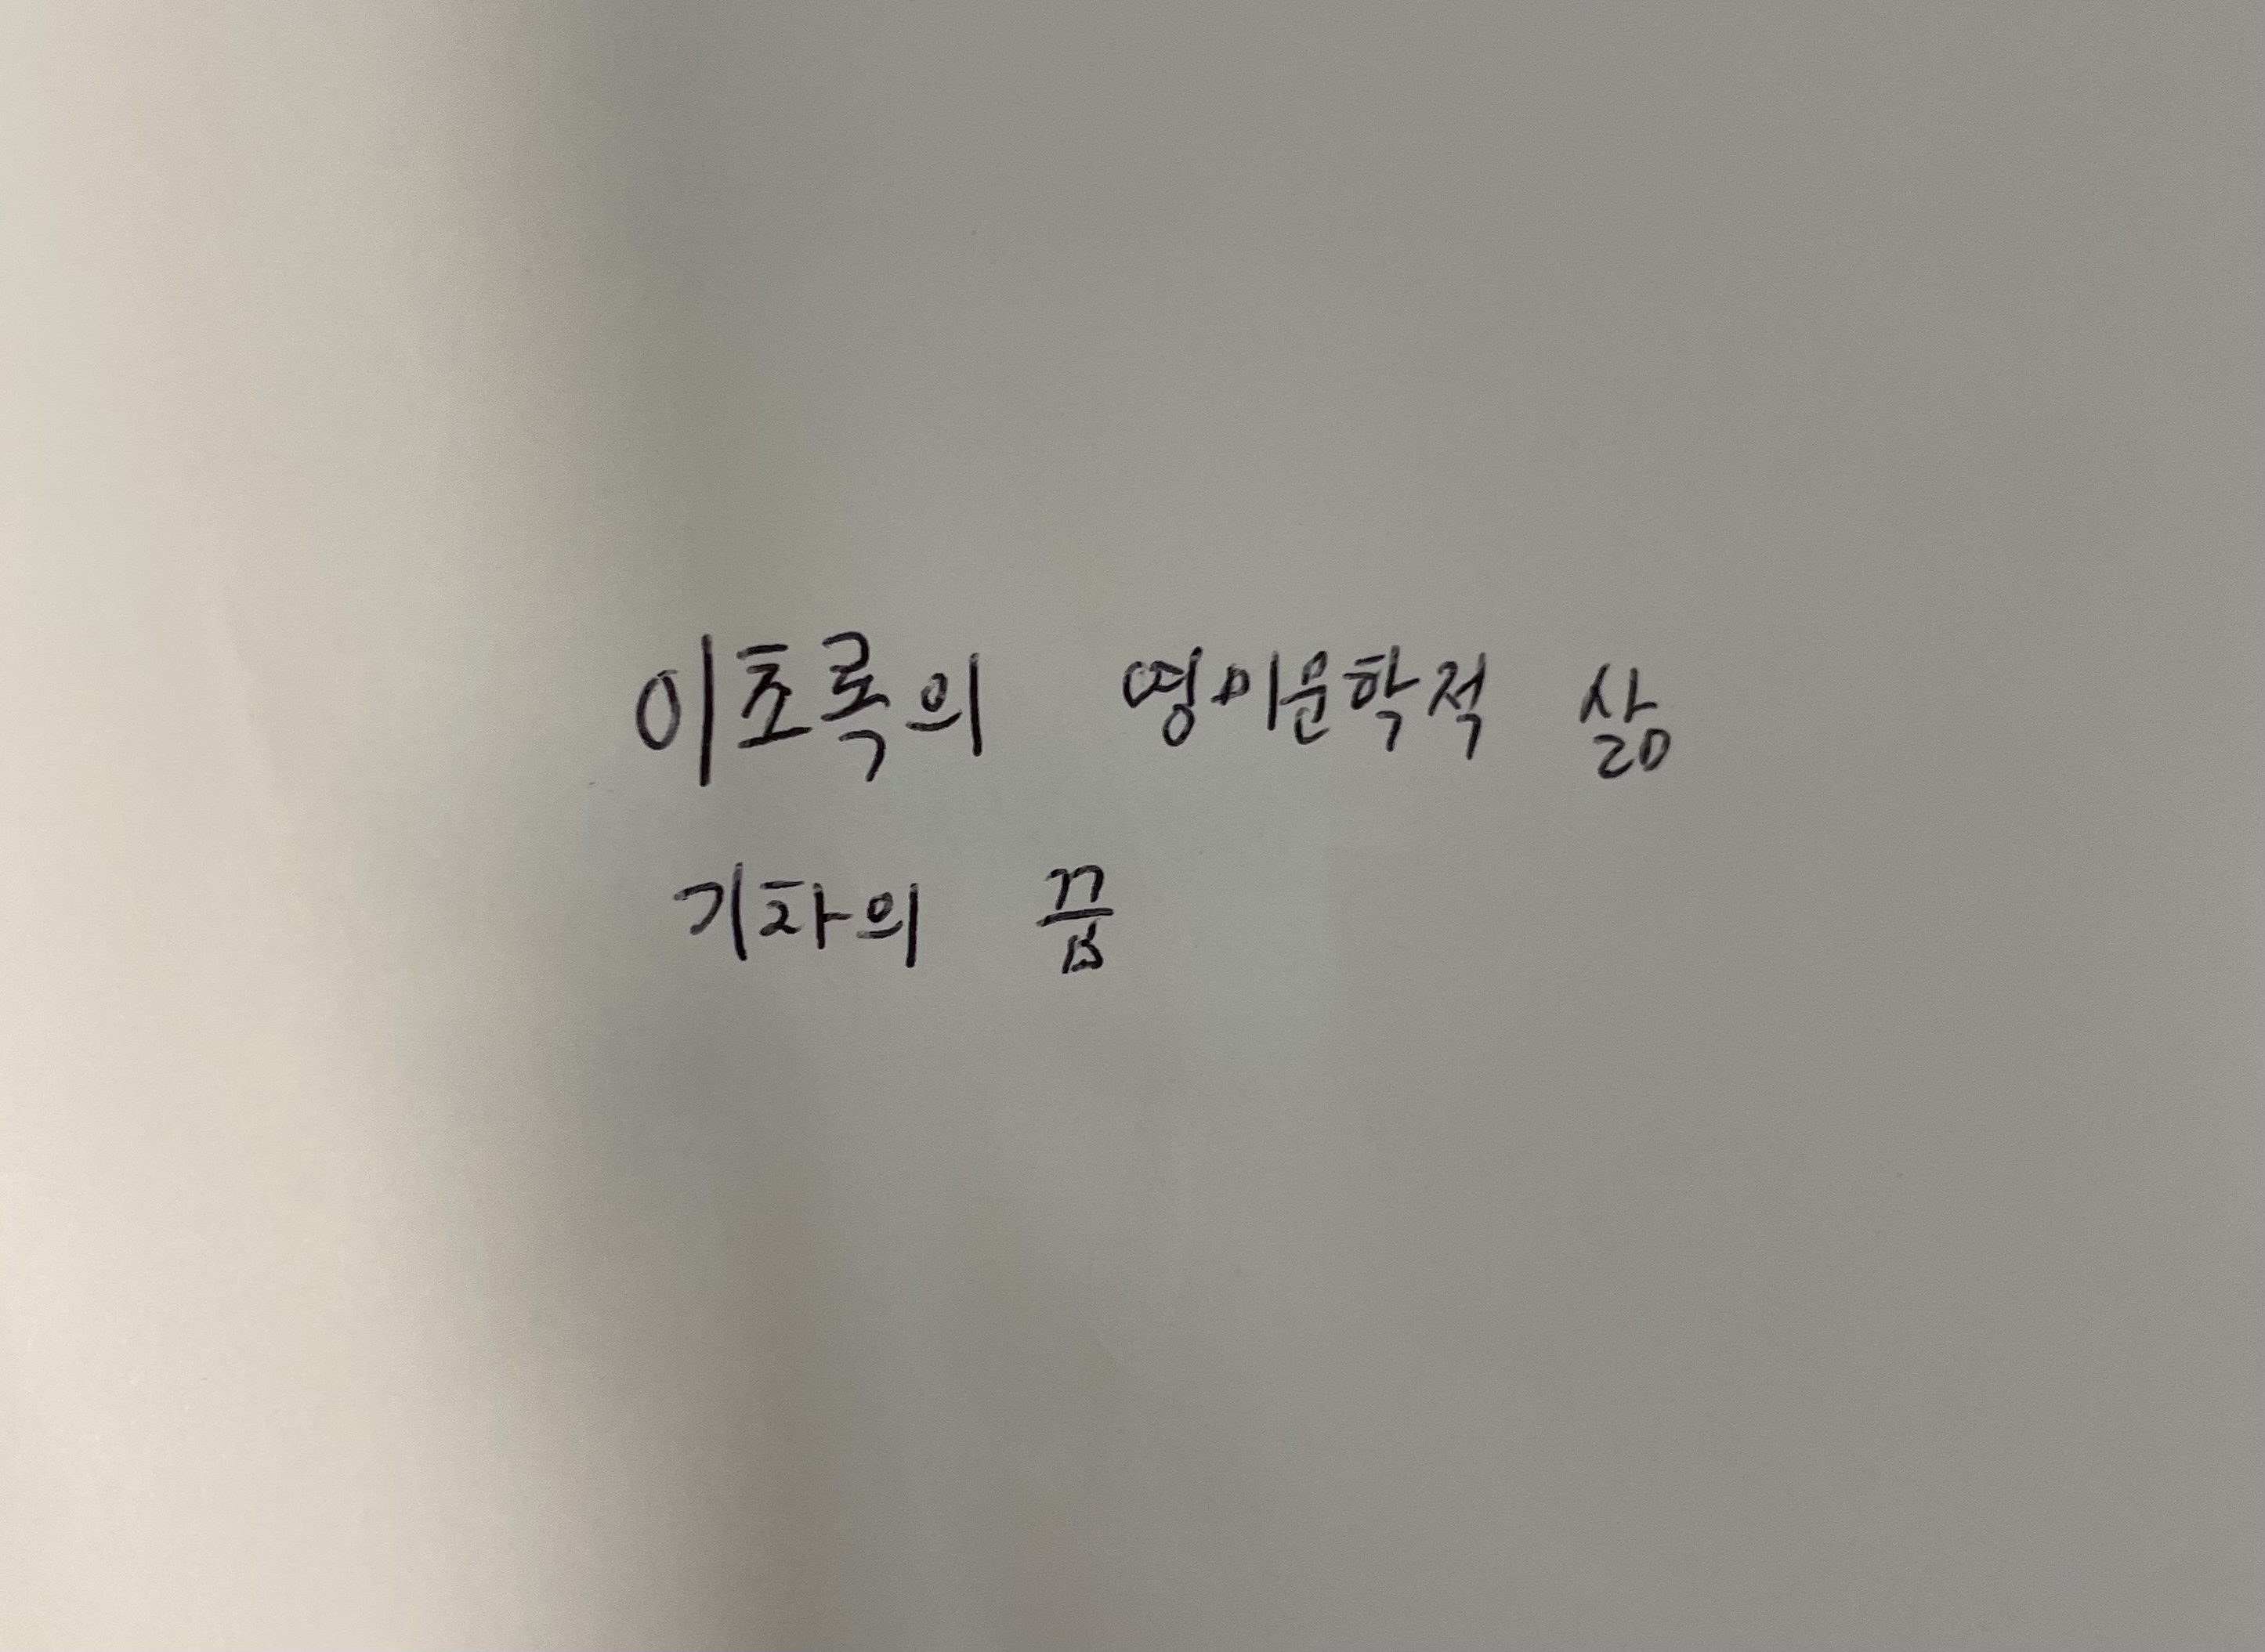 이초록의 영미문학적 삶
기차의 꿈